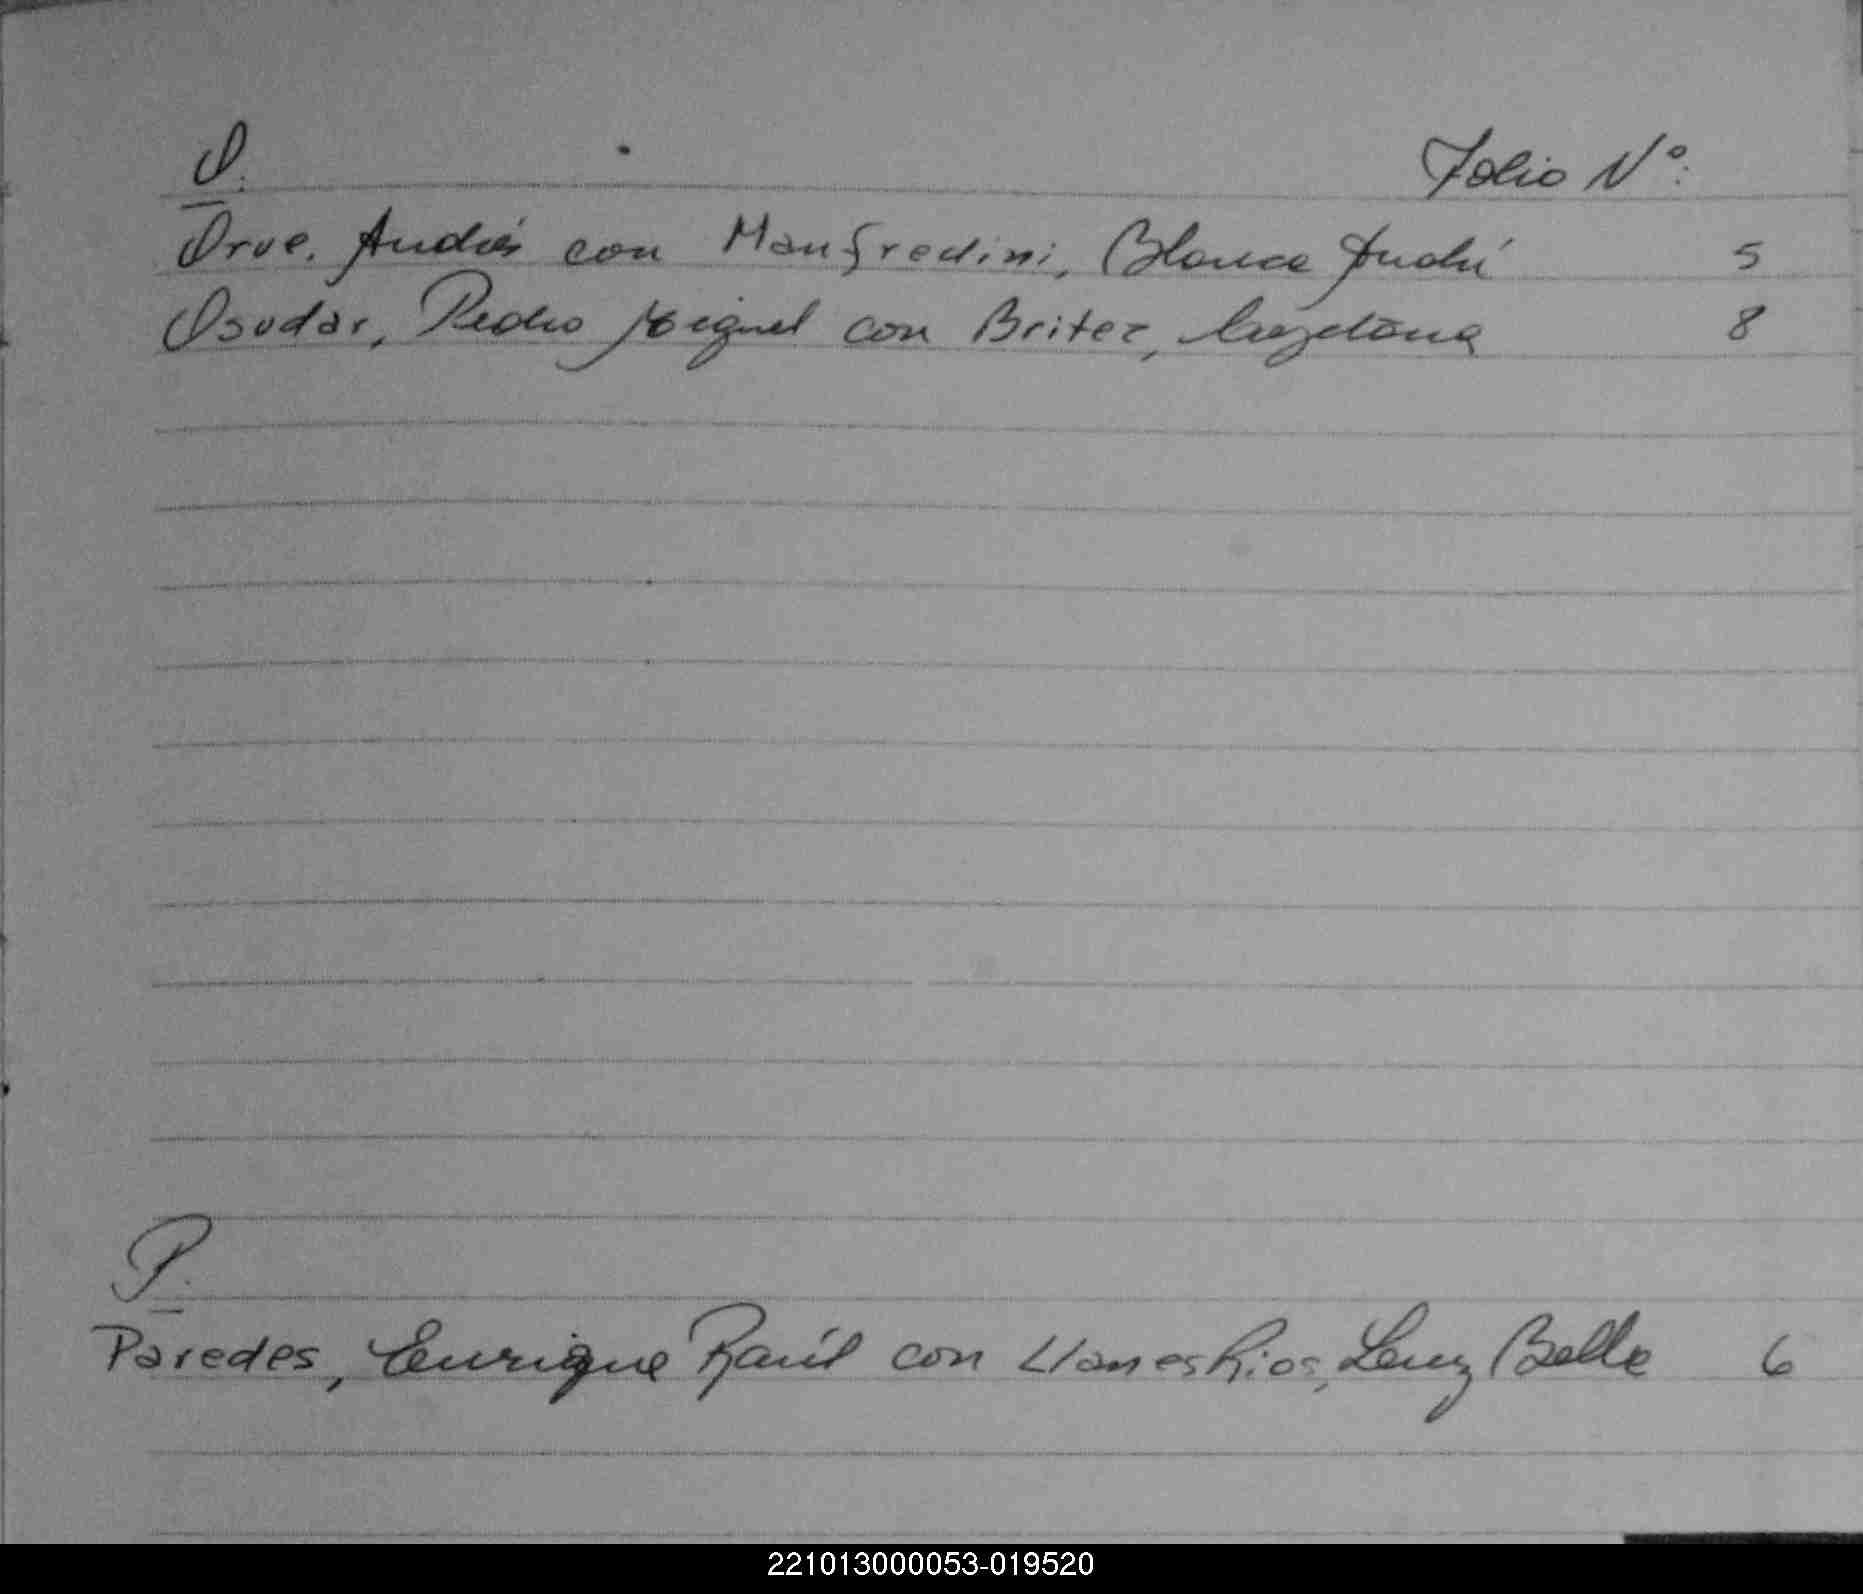 O. Folio Nº:
Orue, Andrés con Manfredini, Blanca 5
Osudar, Pedro Miguel con Britez, Cayetana 8
P.
Paredes, Enrique Raúl con Llanes Rios, Luz Bella 6
221013000053-019520